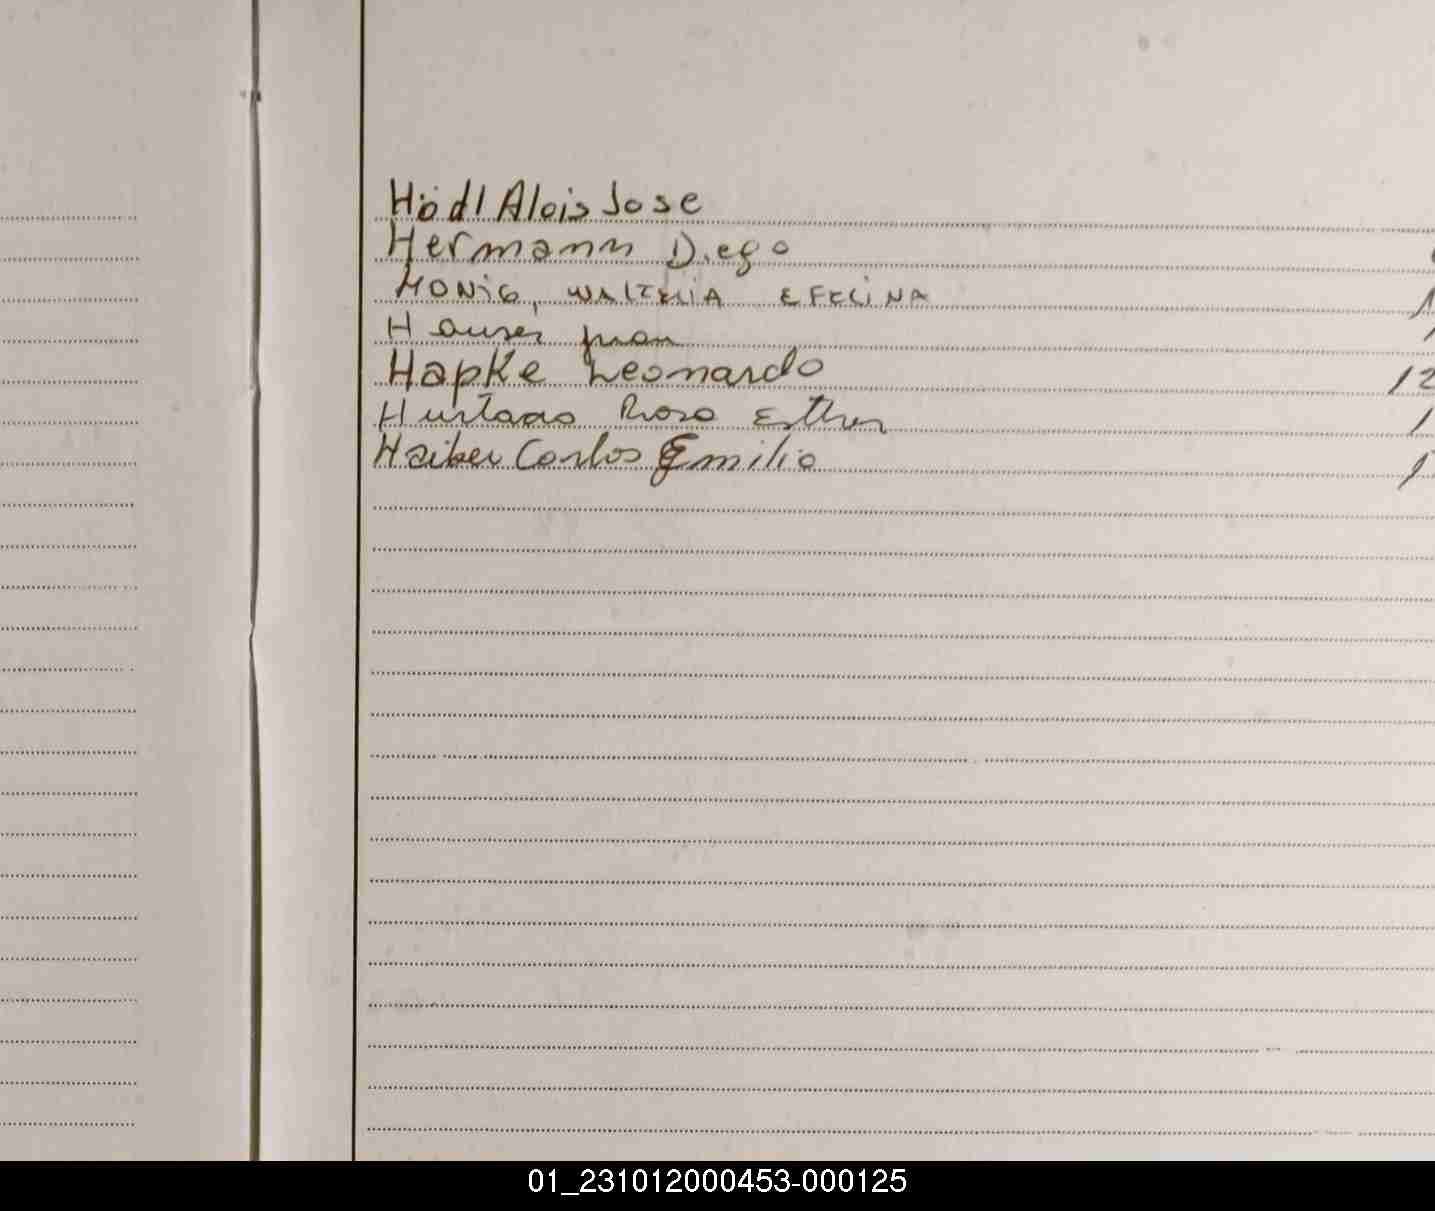 Hödl Alois Jose
Hermann Diego
HONIG,
Hauser Juan
Hapke Leonardo 12
Hurtado Rosa Esther
Haiber Carlos Emilio
01_231012000453-000125